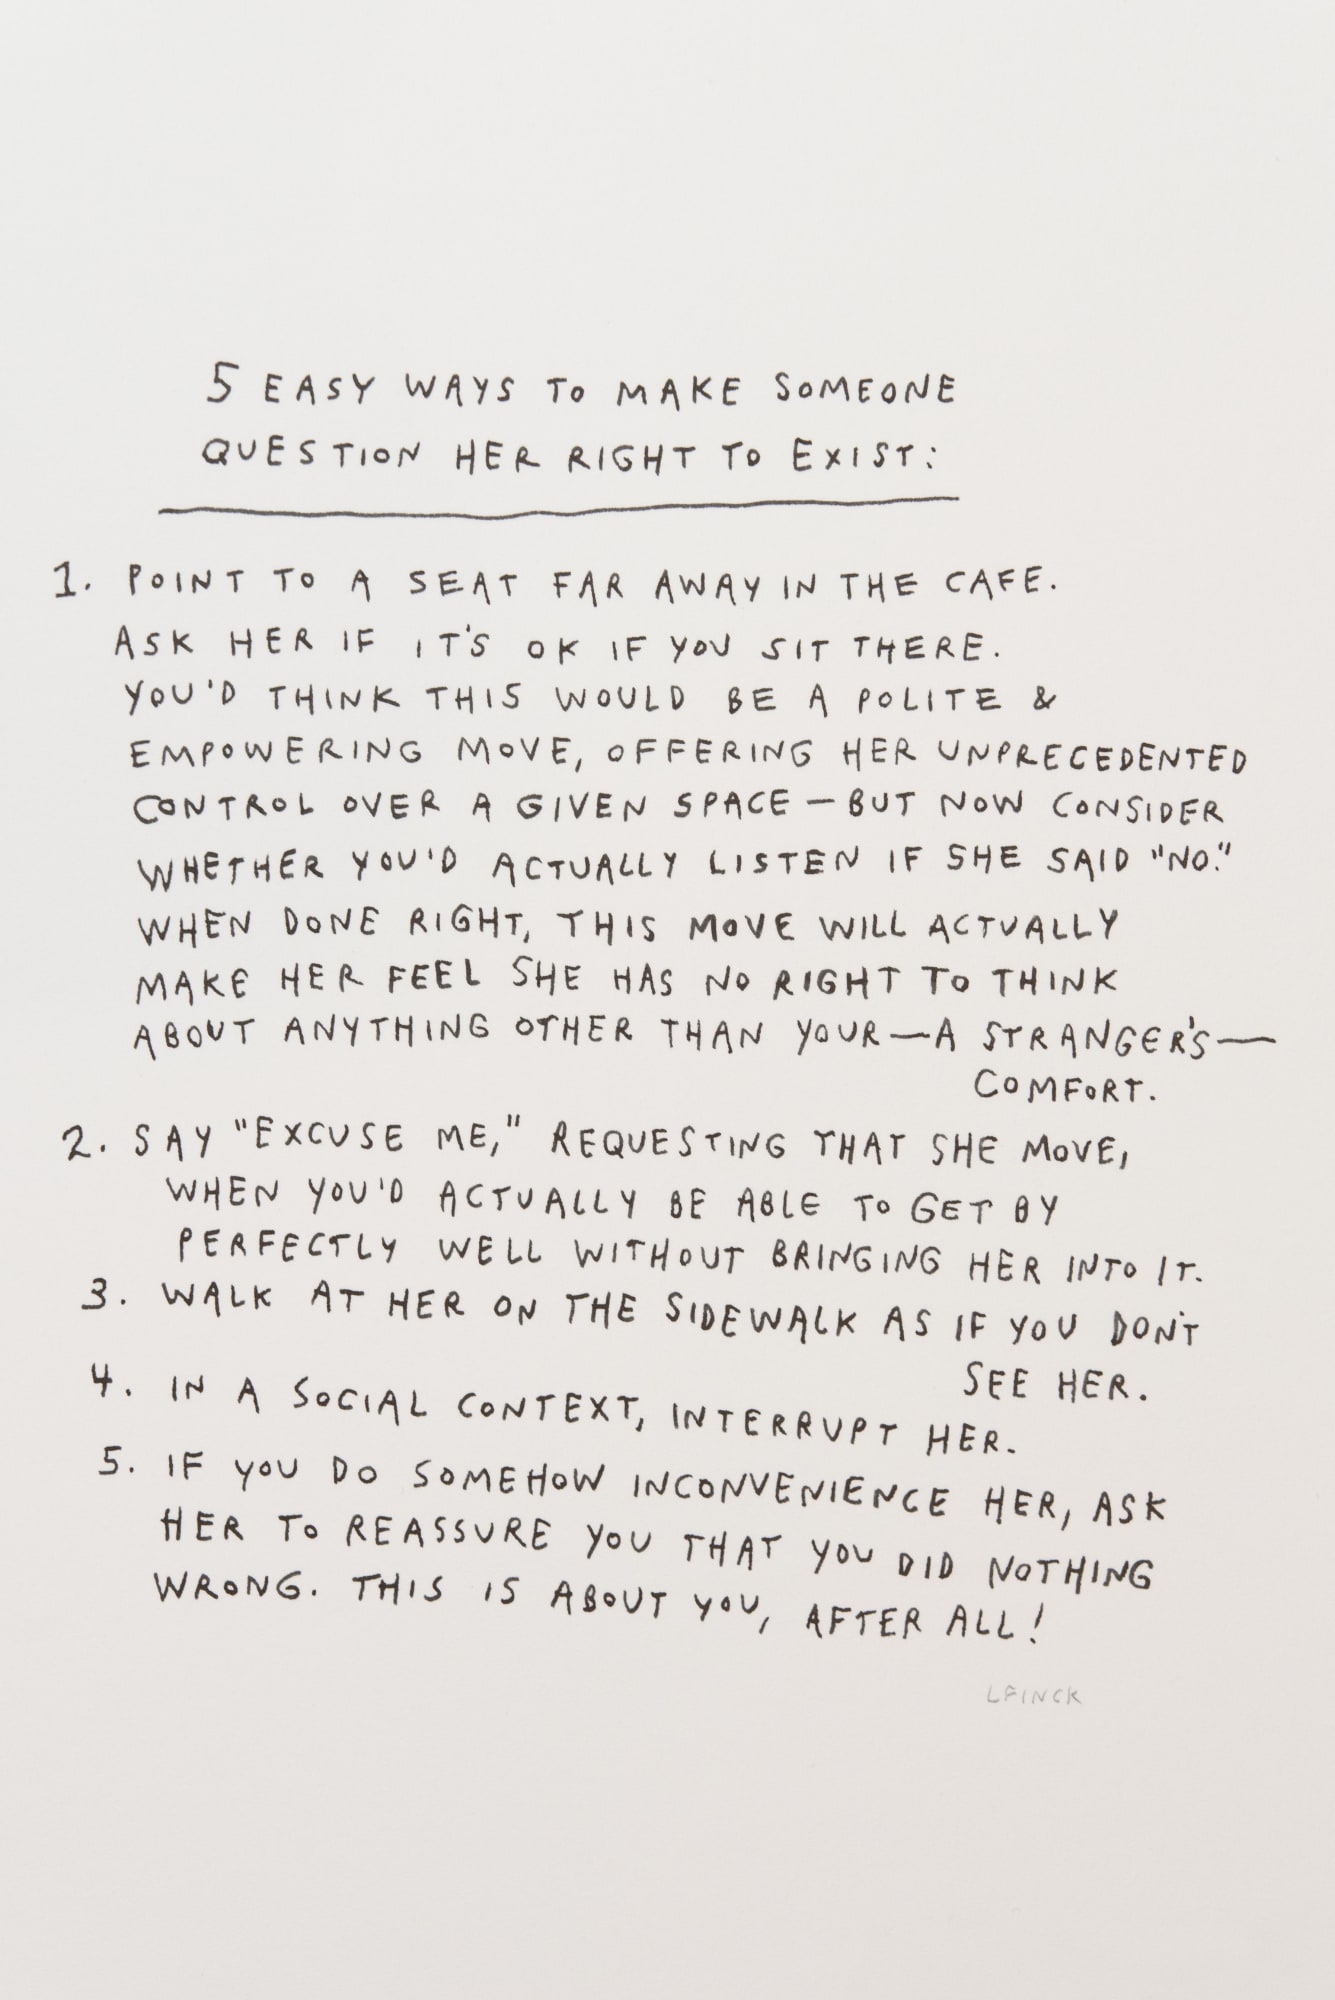 5 EASY WAYS TO MAKE SOMEONE
QUESTION HER RIGHT TO EXIST:
1. POINT TO A SEAT FAR AWAY IN THE CAFE.
ASK HER IF IT'S OK IF YOU SIT THERE.
YOU'D THINK THIS WOULD BE A POLITE &
EMPOWERING MOVE, OFFERING HER UNPRECEDENTED
CONTROL OVER A GIVEN SPACE — BUT NOW CONSIDER
WHETHER YOU'D ACTUALLY LISTEN IF SHE SAID "NO."
WHEN DONE RIGHT, THIS MOVE WILL ACTUALLY
MAKE HER FEEL SHE HAS NO RIGHT TO THINK
ABOUT ANYTHING OTHER THAN YOUR — A STRANGER'S —
COMFORT.
2. SAY "EXCUSE ME," REQUESTING THAT SHE MOVE,
WHEN YOU'D ACTUALLY BE ABLE TO GET BY
PERFECTLY WELL WITHOUT BRINGING HER INTO IT.
3. WALK AT HER ON THE SIDEWALK AS IF YOU DON'T
SEE HER.
4. IN A SOCIAL CONTEXT, INTERRUPT HER.
5. IF YOU DO SOMEHOW INCONVENIENCE HER, ASK
HER TO REASSURE YOU THAT YOU DID NOTHING
WRONG. THIS IS ABOUT YOU, AFTER ALL!
LFINCK